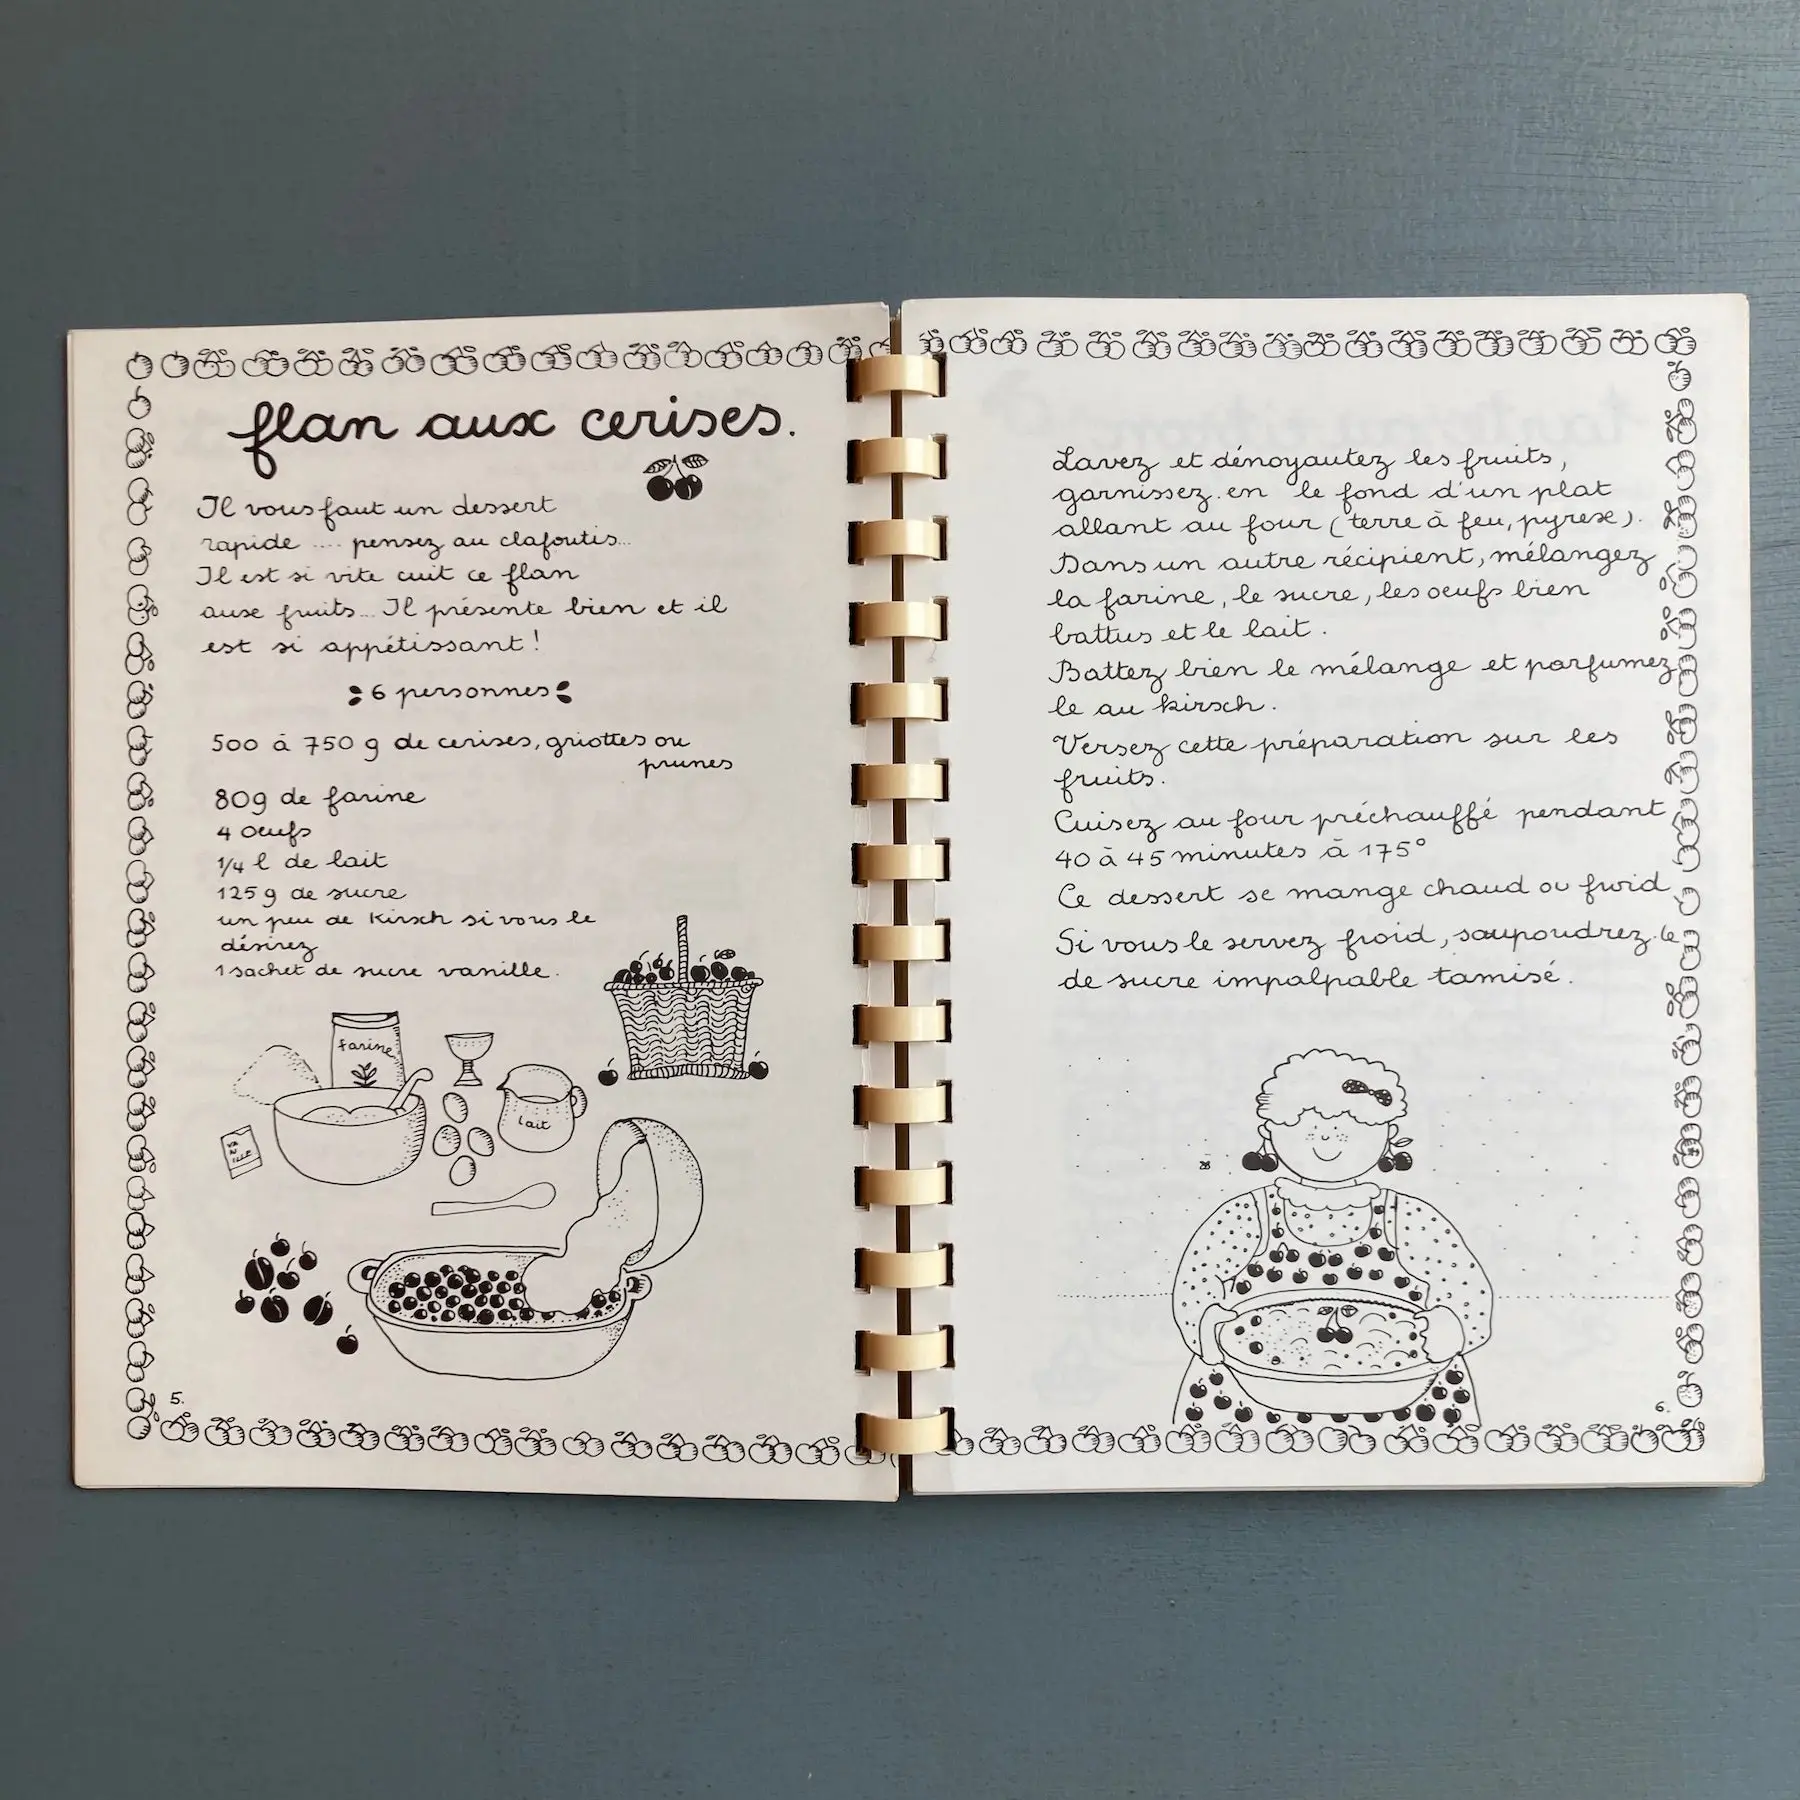 flan aux cerises.
Il vous faut un dessert
rapide .... pensez au clafoutis...
Il est si vite cuit ce flan
aux fruits... Il présente bien et il
est si appétissant !
6 personnes
500 à 750 g de cerises, griottes ou
prunes
80g de farine
4 oeufs
1/4 l de lait
125 g de sucre
un peu de Kirsch si vous le
désirez
1 sachet de sucre vanille.
farine
lait
VA
NI
LLE
5.
Lavez et dénoyautez les fruits,
garnissez.en le fond d'un plat
allant au four (terre à feu, pyrex).
Dans un autre récipient, mélangez
la farine, le sucre, les oeufs bien
battus et le lait.
Battez bien le mélange et parfumez
le au kirsch.
Versez cette préparation sur les
fruits.
Cuisez au four préchauffé pendant
40 à 45 minutes à 175°
Ce dessert se mange chaud ou froid
Si vous le servez froid, saupoudrez.le
de sucre impalpable tamisé.
6.